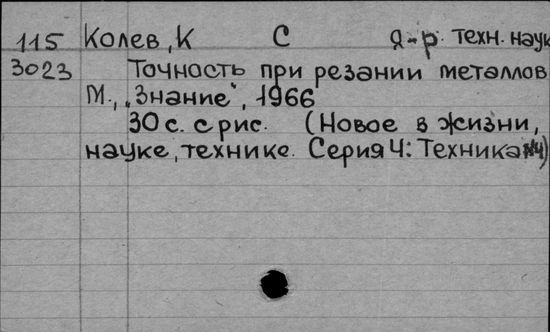 115 Колев, К С д-р. техн. наук
3023 Точность при резании металлов
М., „Знание", 1966
30 с. с рис. (Новое в жизни,
науке, технике. Серия 4: Техника №4)